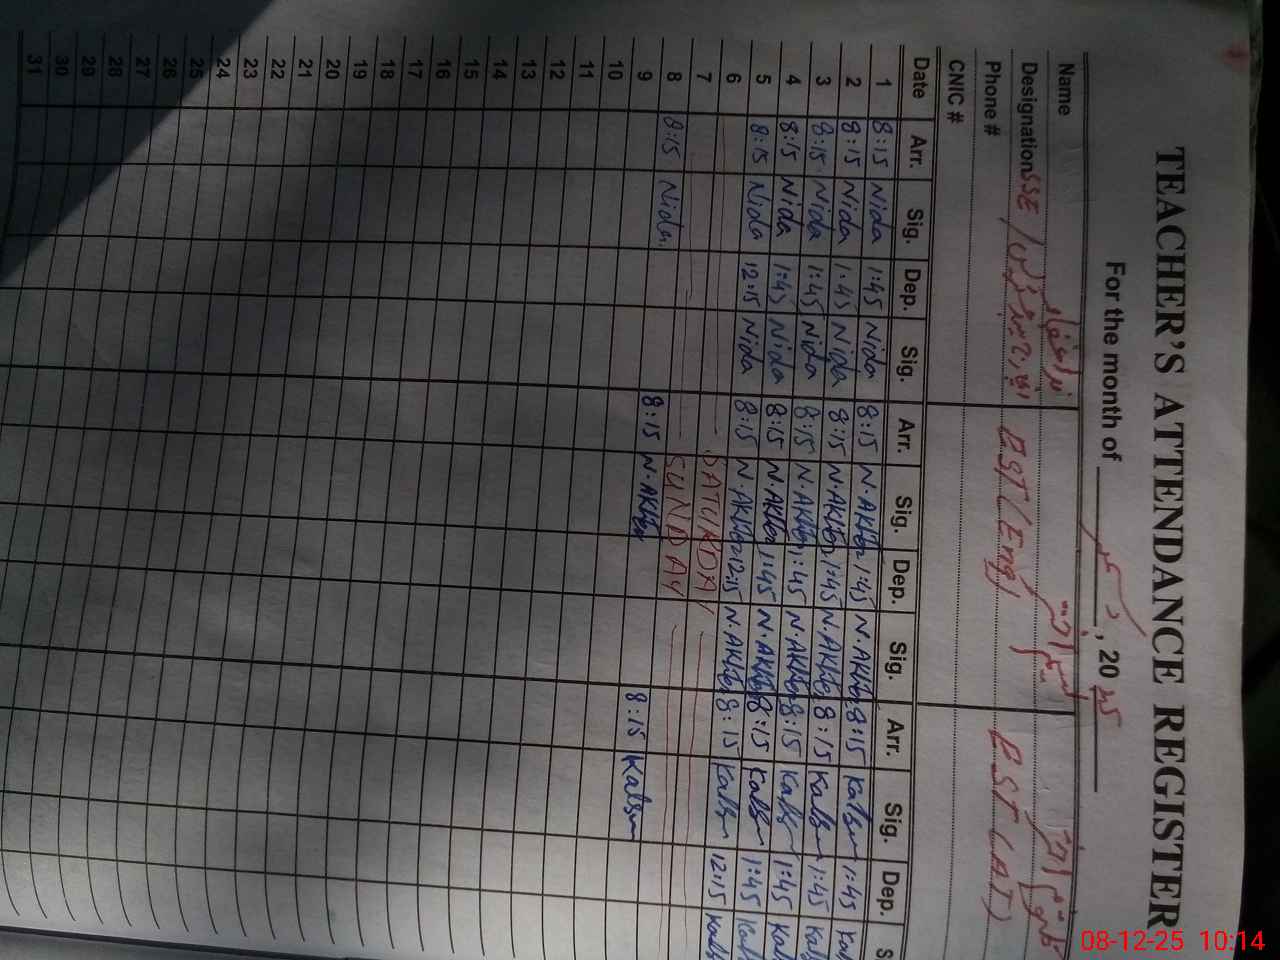 TEACHER'S ATTENDANCE REGISTER
For the month of دسمبر, 2025
Name
Designation SSE / BST (Eng) BST (AT)
Phone #
CNIC #
Date Arr. Sig. Dep. Sig. Arr. Sig. Dep. Sig. Arr. Sig. Dep. S
1 8:15 Nida 1:45 Nida 8:15 N.Akhter 1:45 N.Akhter 8:15 Kalsum 1:45 Kal
2 8:15 Nida 1:45 Nida 8:15 N.Akhter 1:45 N.Akhter 8:15 Kalsum 1:45 Kals
3 8:15 Nida 1:45 Nida 8:15 N.Akhter 1:45 N.Akhter 8:15 Kalsum 1:45 Kal
4 8:15 Nida 1:45 Nida 8:15 N.Akhter 1:45 N.Akhter 8:15 Kalsum 1:45 Kal
5 8:15 Nida 12:15 Nida 8:15 N.Akhter 12:15 N.Akhter 8:15 Kalsum 12:15 Kals
6 SATURDAY
7 SUNDAY
8 8:15 Nida 8:15 N.Akhter 8:15 Kalsum
9
10
11
12
13
14
15
16
17
18
19
20
21
22
23
24
25
26
27
28
29
30
31
08-12-25 10:14